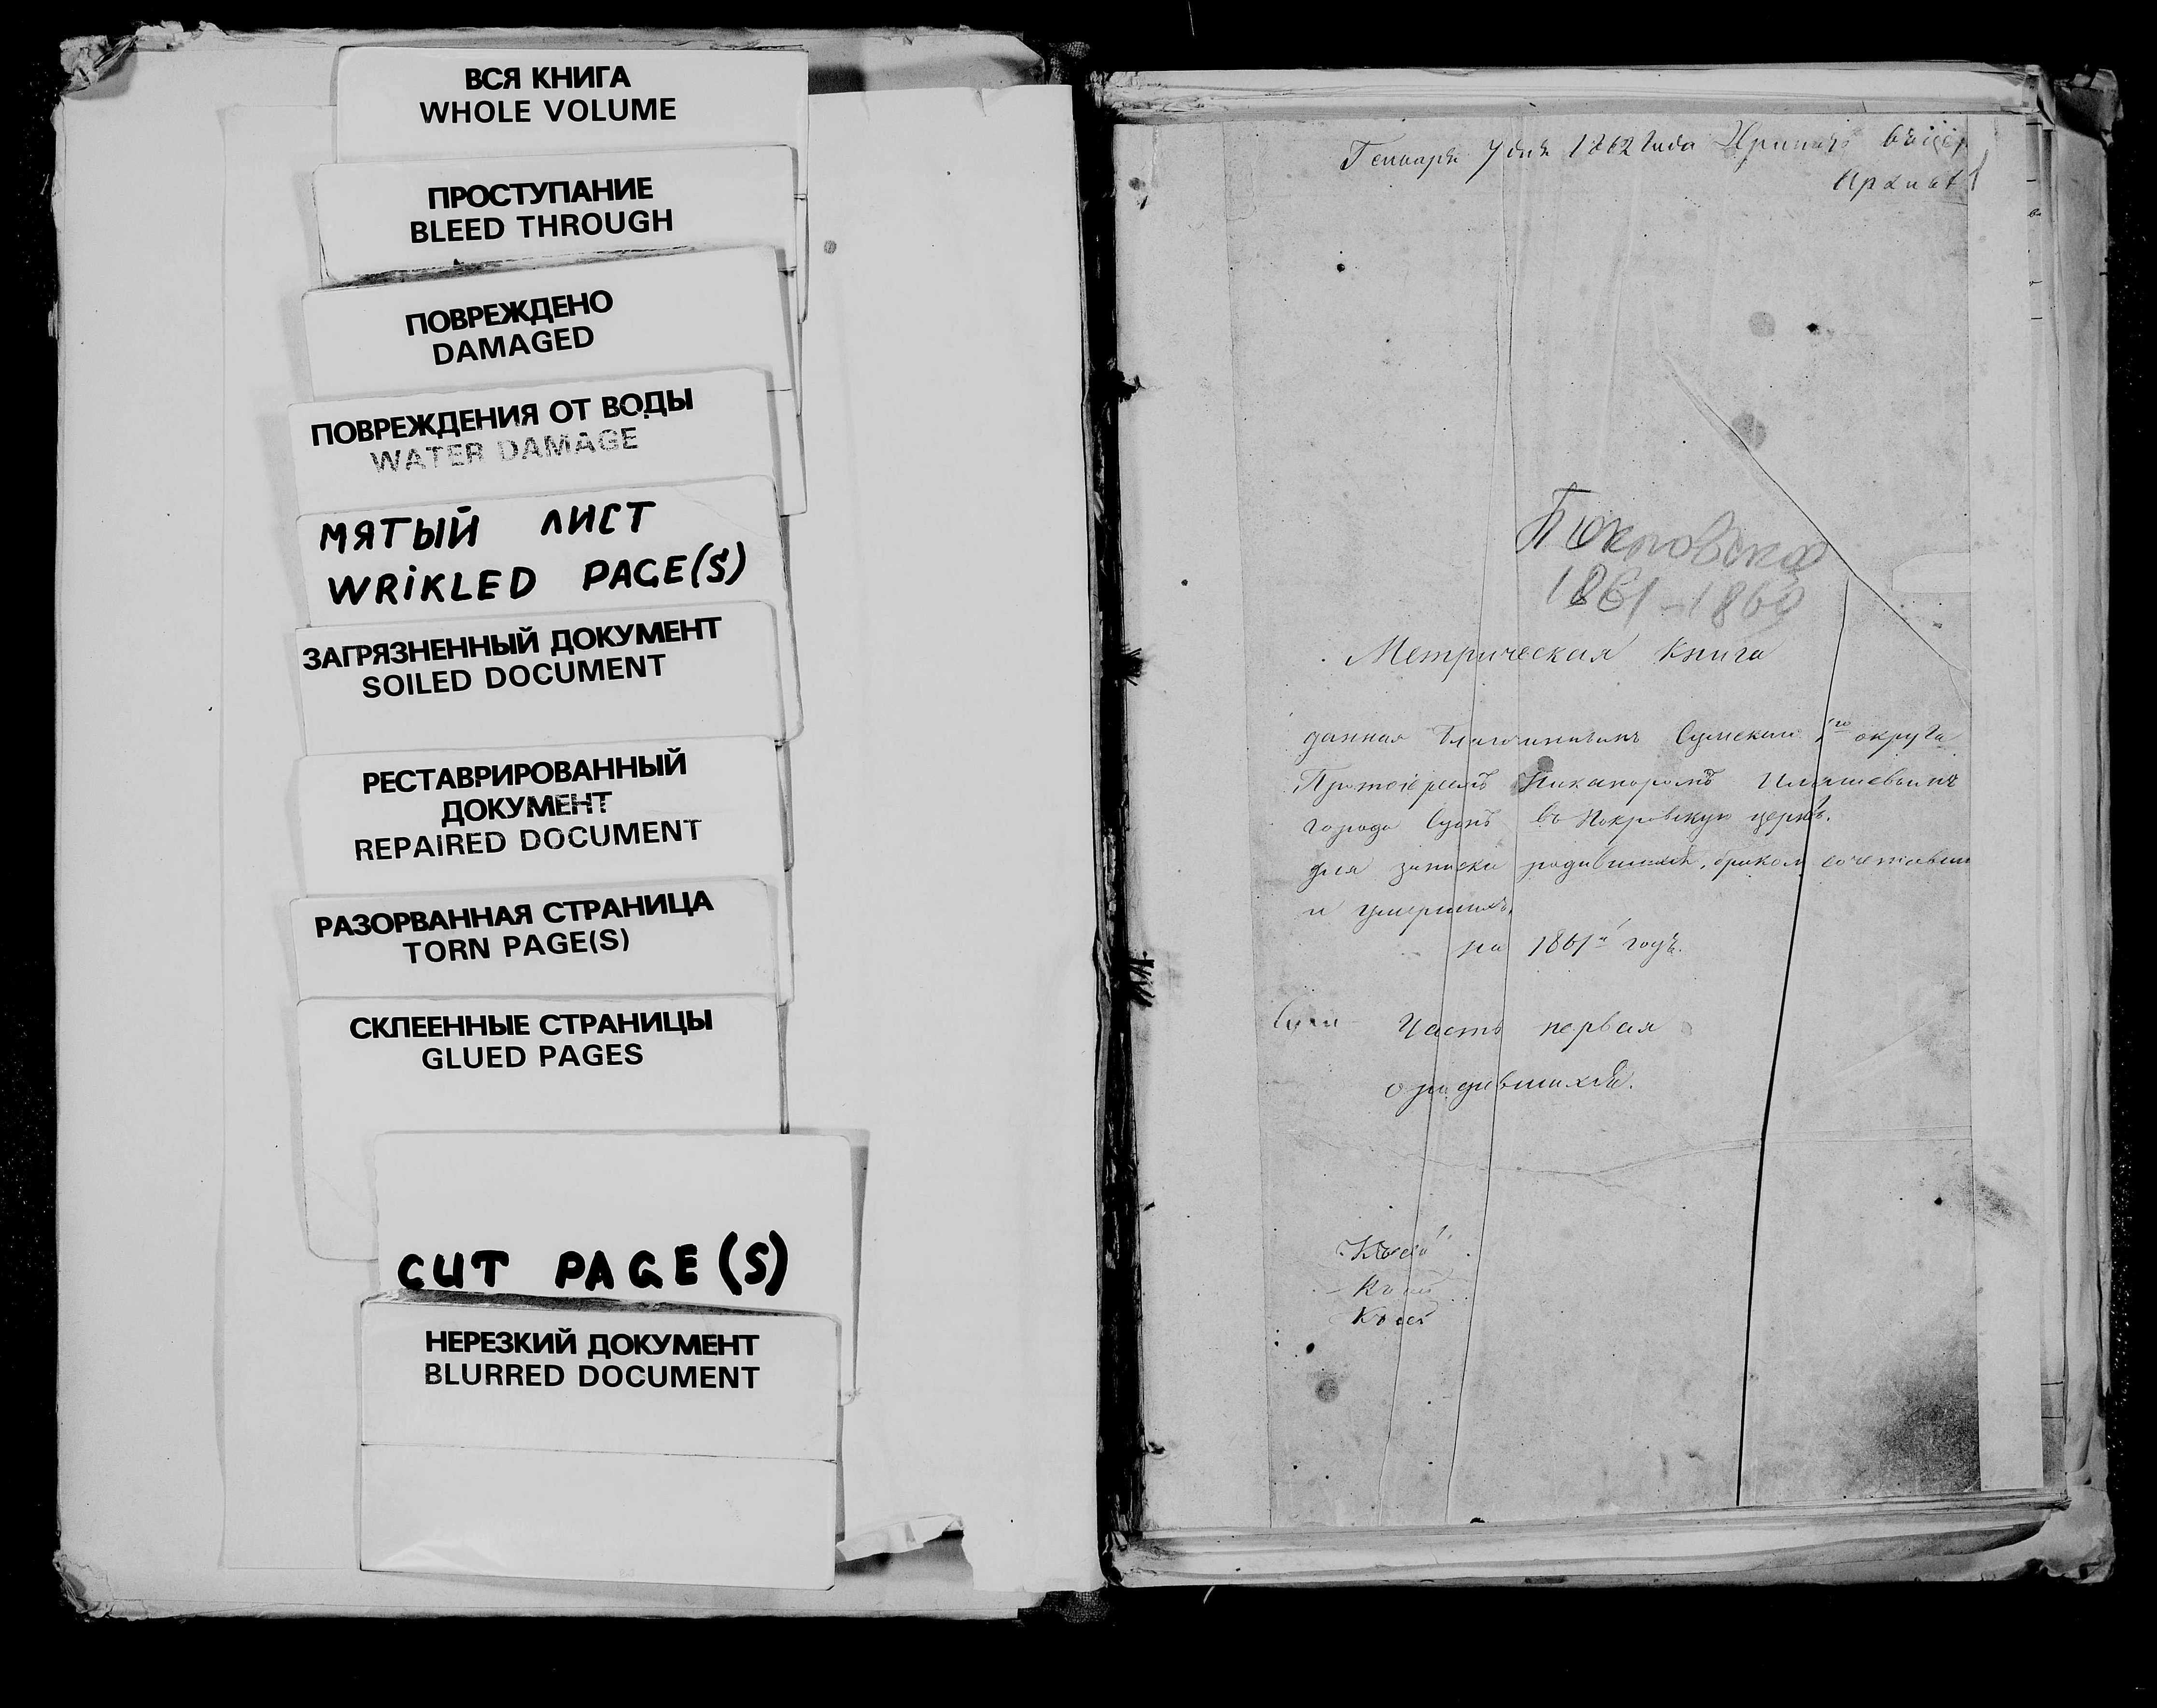 ВСЯ КНИГА
WHOLE VOLUME
ПРОСТУПАНИЕ
BLEED THROUGH
ПОВРЕЖДЕНО
DAMAGED
ПОВРЕЖДЕНИЯ ОТ ВОДЫ
WATER DAMAGE
МЯТЫЙ ЛИСТ
WRiKLED PAGE(S)
ЗАГРЯЗНЕННЫЙ ДОКУМЕНТ
SOILED DOCUMENT
РЕСТАВРИРОВАННЫЙ
ДОКУМЕНТ
REPAIRED DOCUMENT
РАЗОРВАННАЯ СТРАНИЦА
TORN PAGE(S)
СКЛЕЕННЫЕ СТРАНИЦЫ
GLUED PAGES
CUT PAGE(S)
НЕРЕЗКИЙ ДОКУМЕНТ
BLURRED DOCUMENT
Генваря 7 дня 1862 года Хранить
Архивѣ
Покровская
1861-1869
Метрическая Книга
данная Благочиннымъ Сумскаго 1го округа
Протоіереемъ Никаноромъ
города Сумъ въ Покровскую церквь.
для записки родившихся, браком сочетавши
и умершихъ,
на 1861й годъ.
Часть первая
о родившихся.